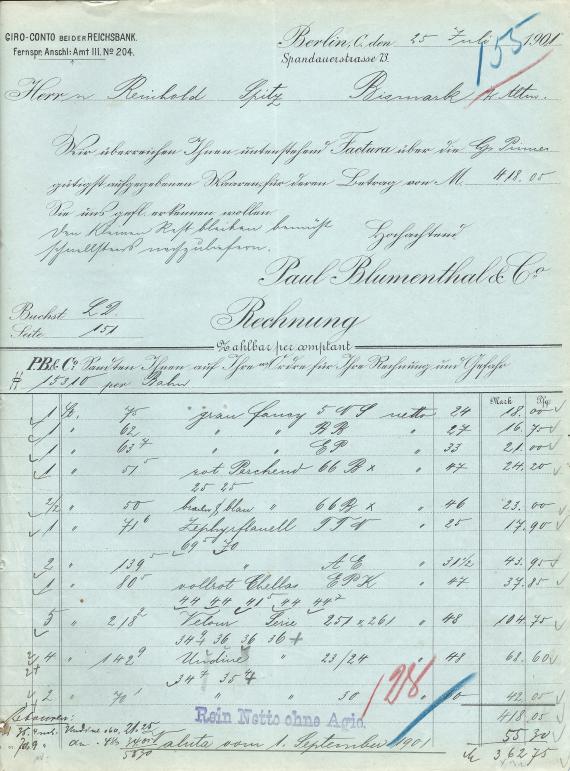 GIRO-CONTO BEI DER REICHSBANK.
Fernspr. Anschl: Amt III. No 204.
Berlin, C. den 25 Juli 1901
Spandauerstrasse 23.
155
Herrn Reinhold Spitz Bismark
Wir überreichen Ihnen untenstehend Factura über die
gütigst aufgegebenen Waaren, für deren Betrag von M. 418.05
Sie uns gefl. erkennen wollen
Den kleinen Rest bleiben bemüht
schnellstens nachzuliefern.
Hochachtend
Paul Blumenthal & Co
Buchst LD.
Seite 151
Rechnung
Zahlbar per comptant
P.B. & Co Sandten Ihnen auf Ihre Ordre für Ihre Rechnung und Gefahr
15310 per Bahn
Mark Pfg.
1 75 grau fancy 5 netto 24 18.00
1 " 62 " " BB " 27 16.75
1 " 63 " " EP " 33 21.00
1 " 51 5 rot 66 B x " 47 24.20
25 25
2/2 " 50 & blau " 66 B x " 46 23.00
1 " 71 6 Zephyrflanell " 25 17.90
69 5 70
2 " 139 5 " AE " 31 1/2 43.95
1 " 80 5 vollrot EPK " 47 37.85
44 44 41 5 44 44 2
5 " 218 2 Velour Serie 251 x 261 " 48 104.75
34 2 36 36 36
4 " 142 9 Undine " 23/24 " 48 68.60
34 35
2 " 70 1 " " 30 42.05
128
Rein Netto ohne Agio.
418.05
Retouren:
55.30
Valuta vom 1. September 1901
362 75